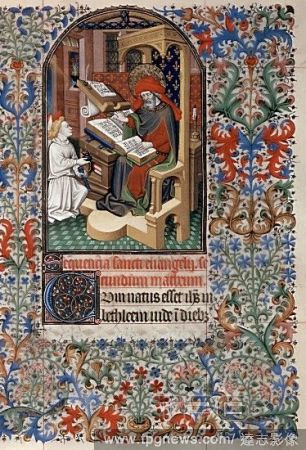 Sequencia sancti euangelij. se
cundum matheum.
Cum natus esset ihs in
bethleem iude i diebz
www.tpgnews.com/達志影像